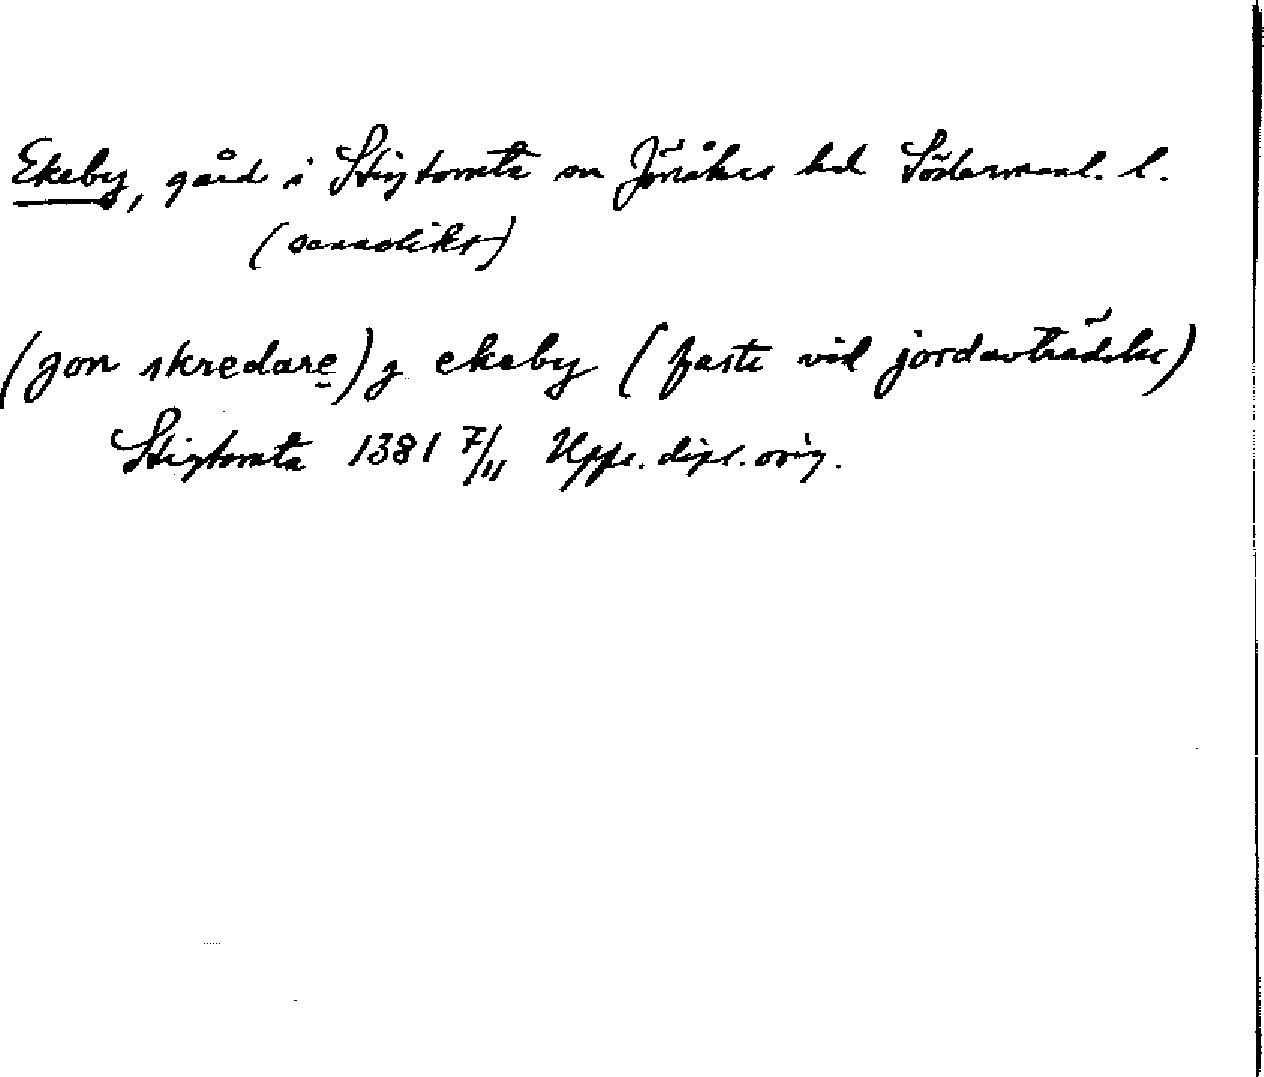 Ekeby, gård i Stigtomta sn Jönåkers hd Södermanl. l.
(sannolikt)
(jon skredare) j ekeby (faste vid jordavträdelse)
Stigtomta 1381 7/11 Upps. dipl. orig.